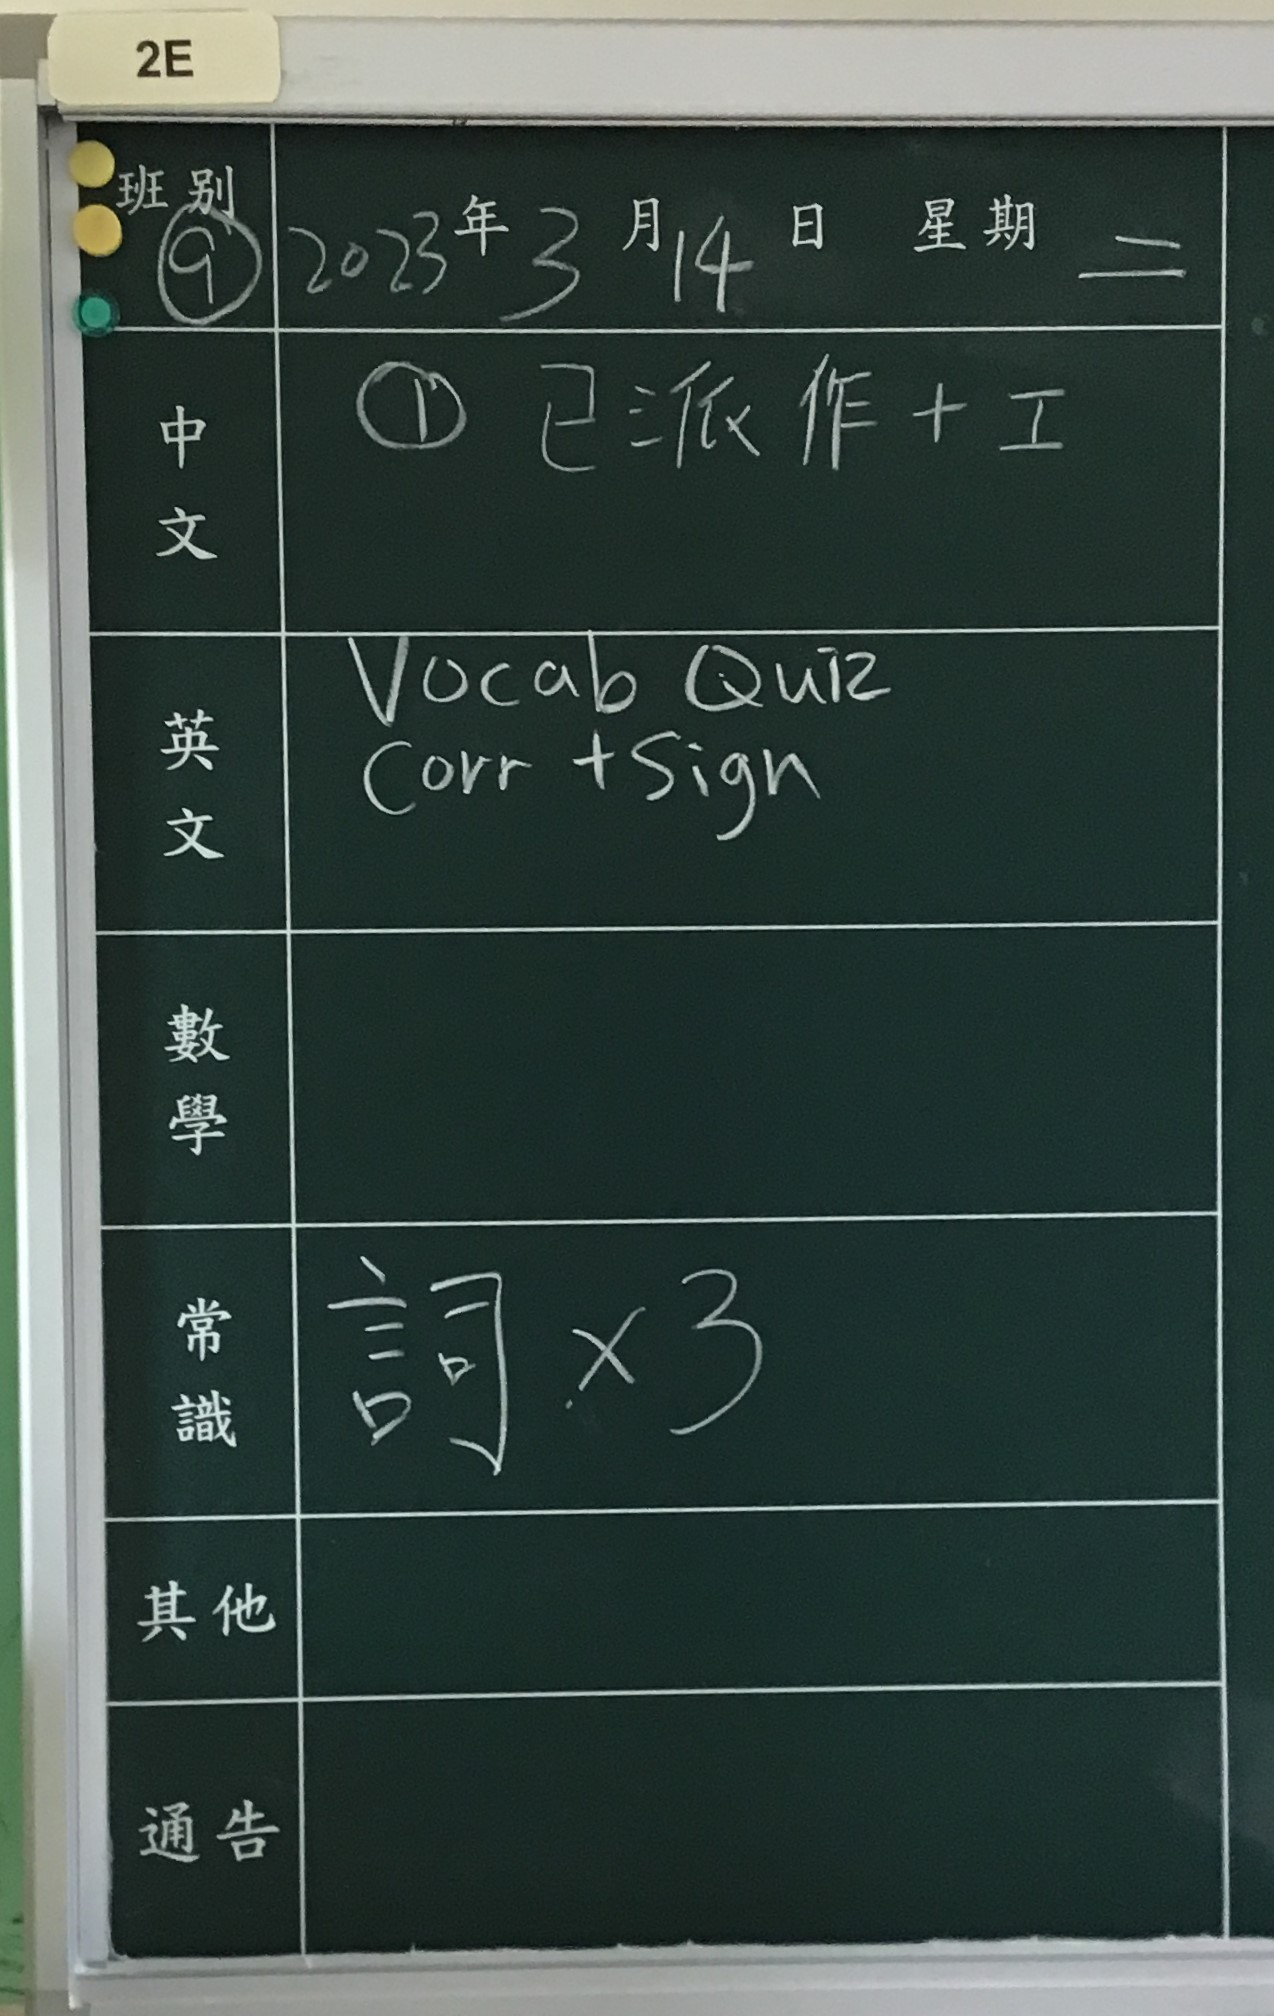 2E
班別 ⑨ 2023年3月14日 星期二
中文 ① 已派作+工
英文 Vocab Quiz
Corr + Sign
數學
常識 詞×3
其他
通告